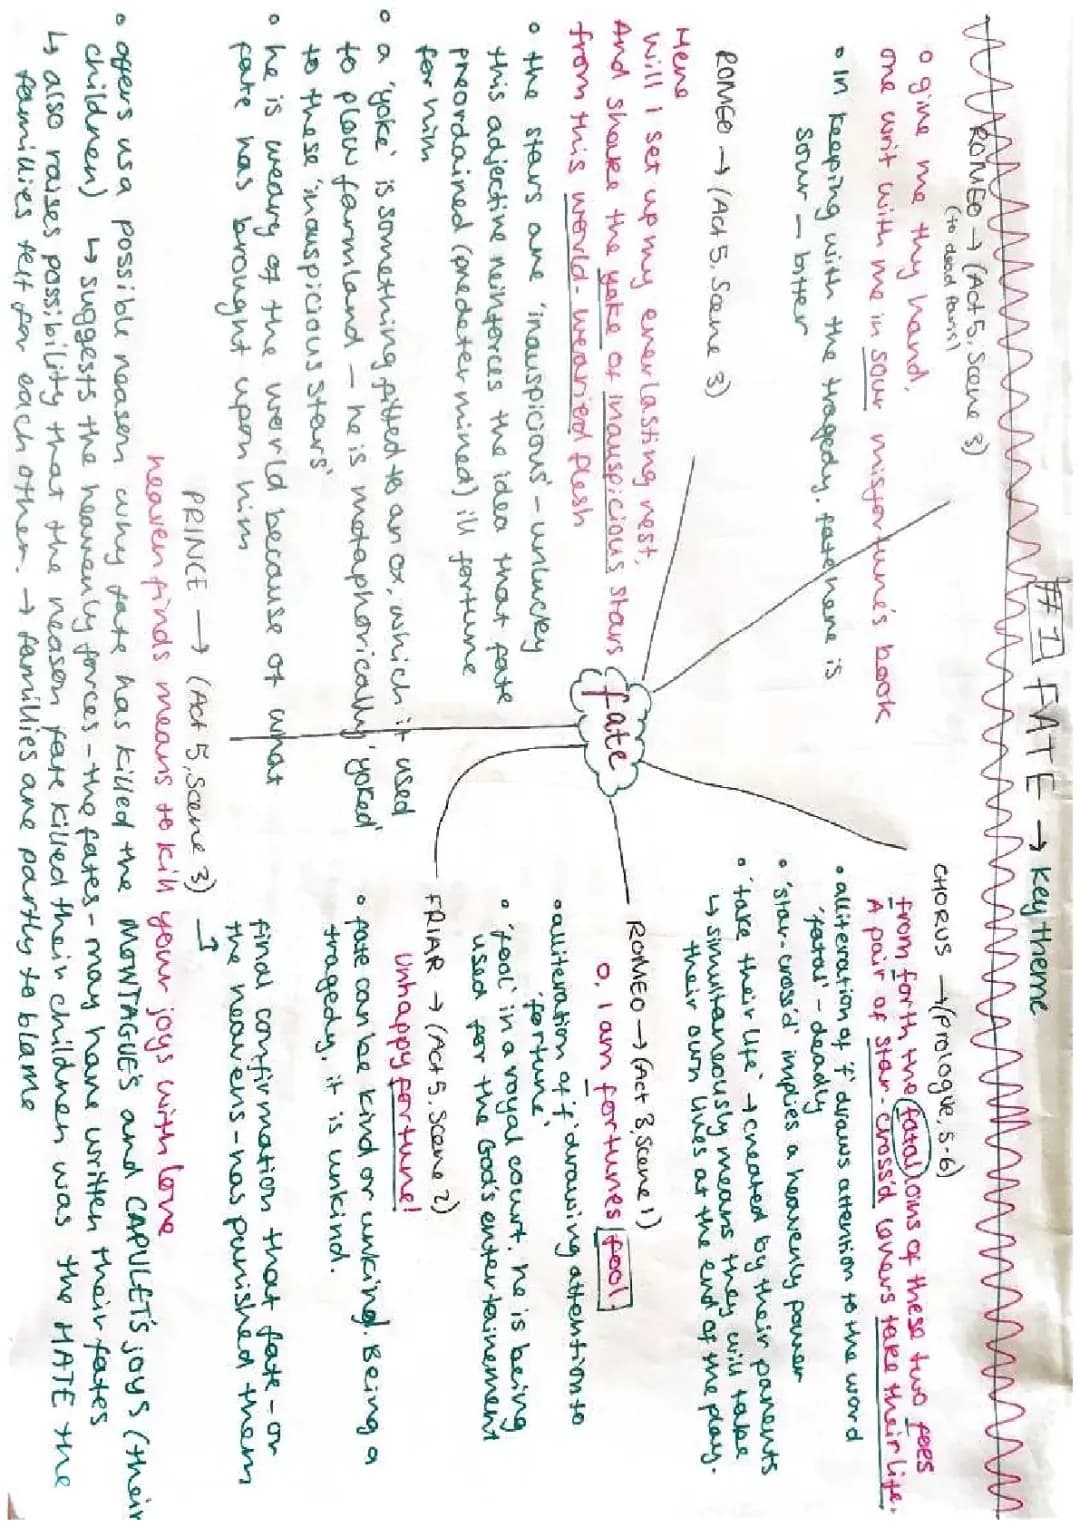 #1 FATE → Key theme
ROMEO → (Act 5, Scene 3)
(to dead Paris)
O give me thy hand,
one writ with me in sour misfortune's book
• In keeping with the tragedy, fate here is
sour - bitter
ROMEO → (Act 5, Scene 3)
Here
Will I set up my everlasting rest,
And shake the yoke of inauspicious stars
from this world-wearied flesh
• the stars are 'inauspicious' - unlucky
this adjective reinforces the idea that fate
preordained (predetermined) ill fortune
for him
• a 'yoke' is something fitted to an ox, which it used
to plow farmland - he is metaphorically 'yoked'
to these 'inauspicious stars'
• he is weary of the world because of what
fate has brought upon him
fate
CHORUS → (Prologue, 5-6)
from forth the fatal loins of these two foes
A pair of star-cross'd lovers take their life.
• alliteration of 'f' draws attention to the word
'fatal' - deadly
• 'star-cross'd' implies a heavenly power
• 'take their life' → created by their parents
↳ simultaneously means they will take
their own lives at the end of the play.
ROMEO → (Act 3, Scene 1)
O, I am fortunes fool!
• alliteration of 'f' drawing attention to
'fortune'
• 'fool' in a royal court. he is being
used for the God's entertainement
FRIAR → (Act 5, Scene 2)
Unhappy fortune!
• fate can be kind or unkind. Being a
tragedy, it is unkind.
PRINCE → (Act 5, Scene 3)
final confirmation that fate - or
the heavens - has punished them
heaven finds means to kill your joys with love
• offers us a possible reason why fate has killed the MONTAGUE's and CAPULET's joys (their
children) ↳ suggests the heavenly forces - the fates - may have written their fates
↳ also raises possibility that the reason fate killed their children was the HATE the
families felt for each other. → families are partly to blame